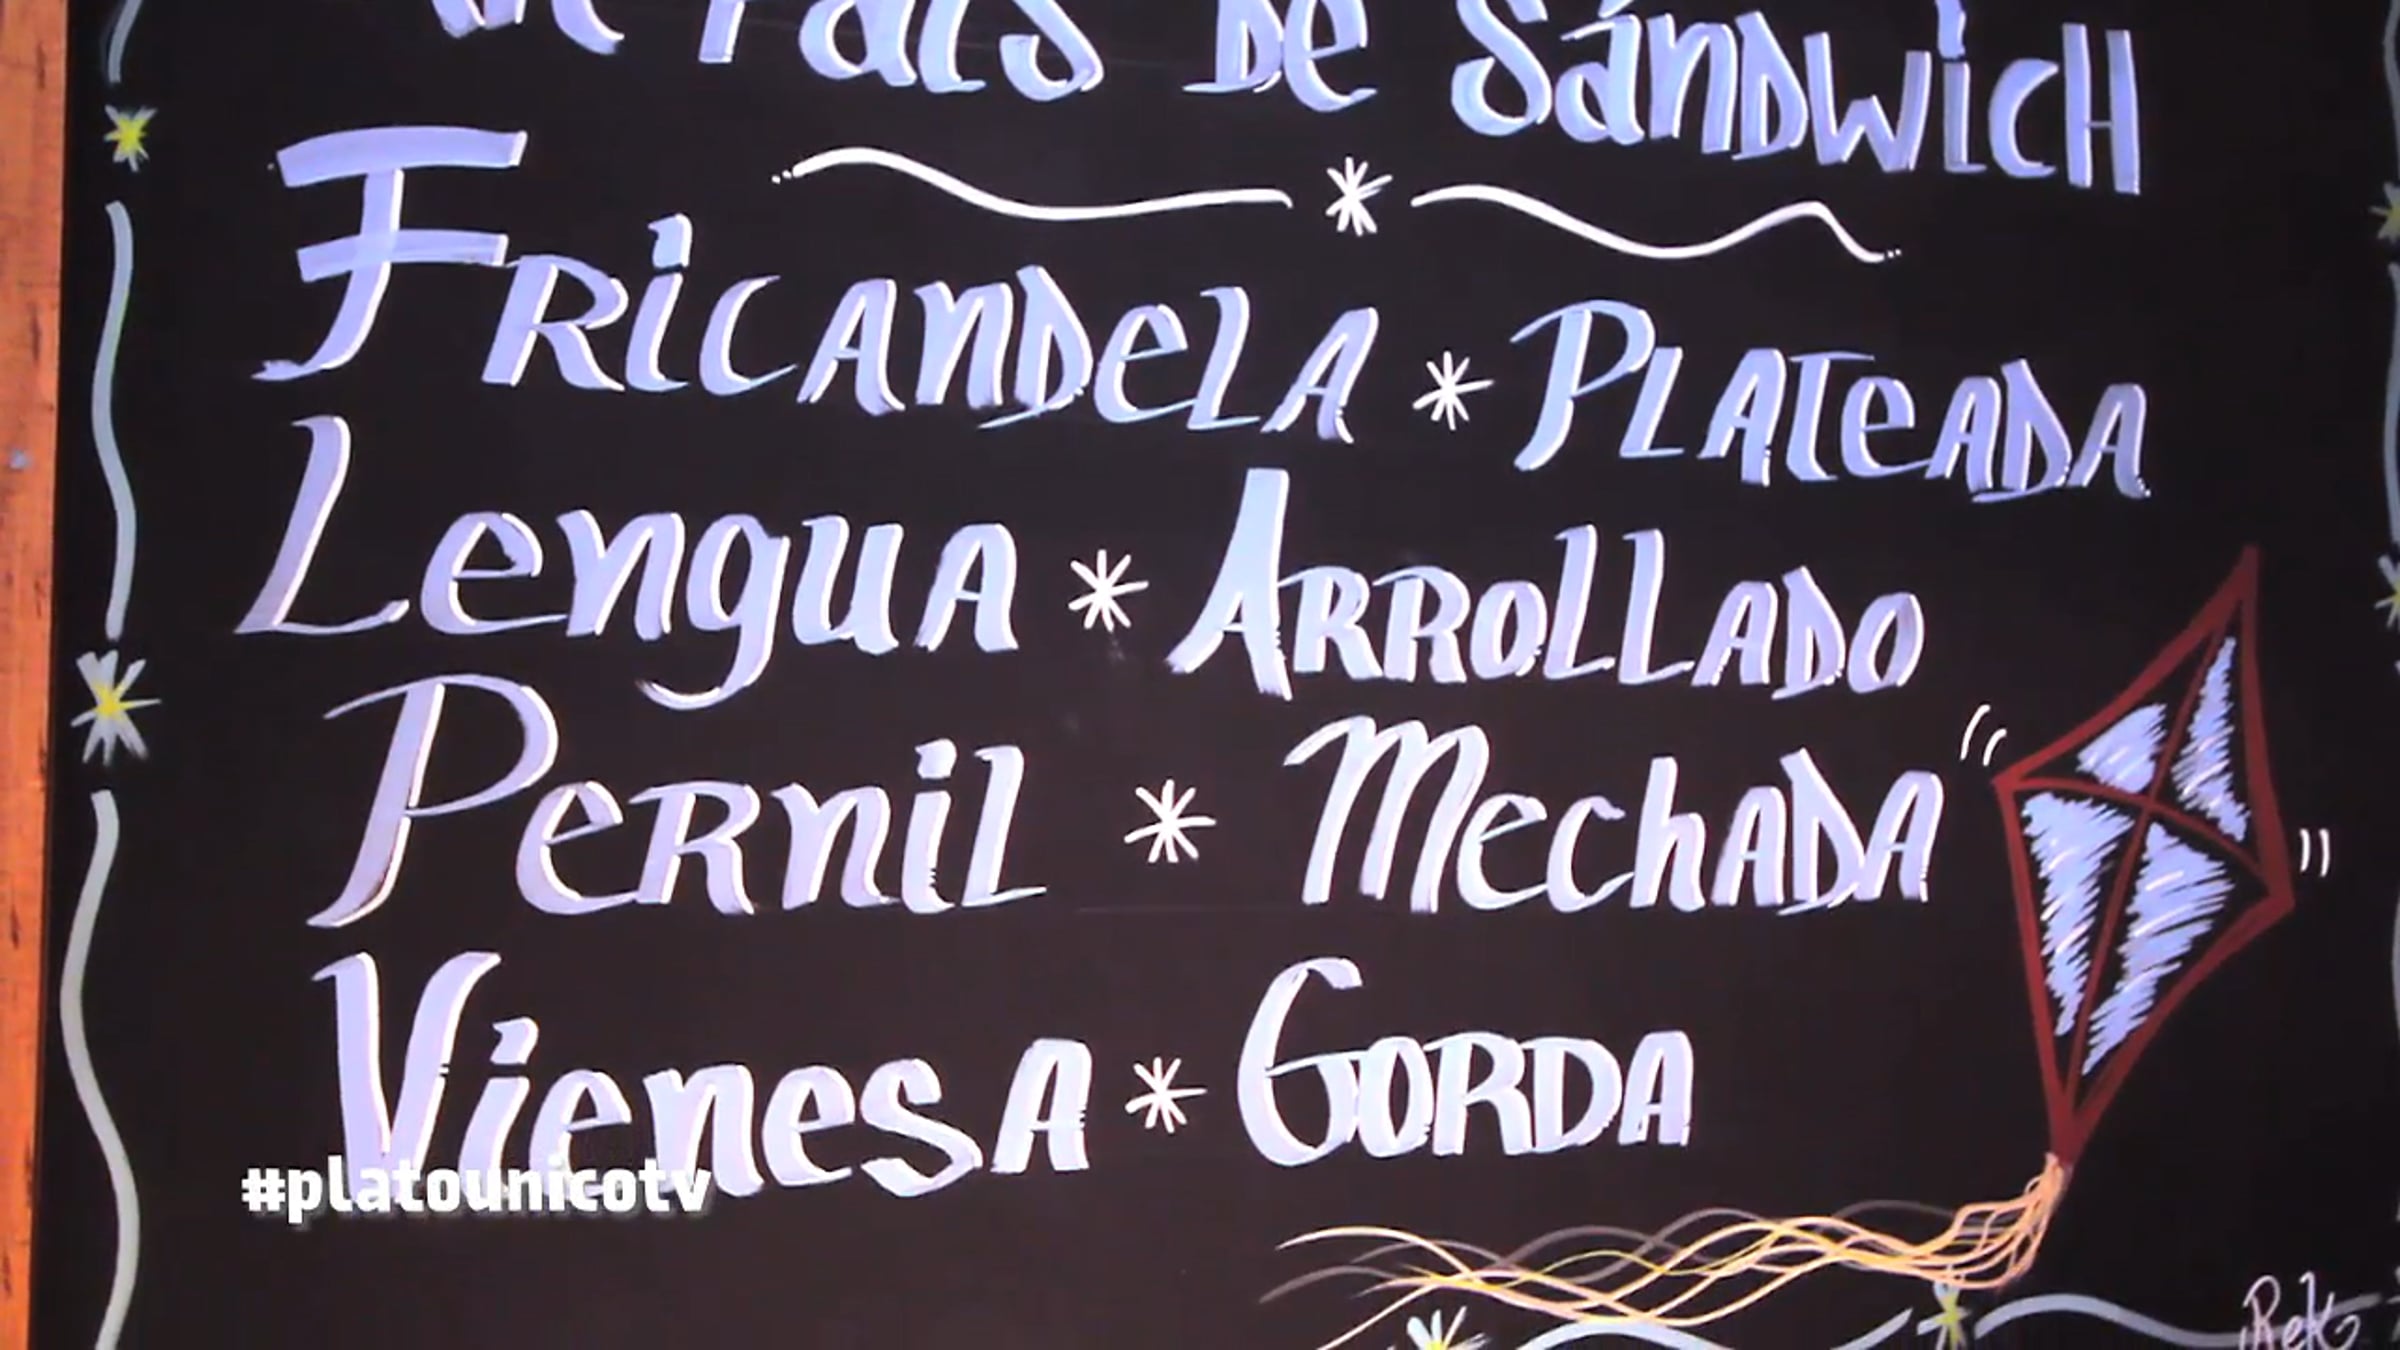 País De Sándwich
Fricandela * Plateada
Lengua * Arrollado
Pernil * Mechada
Vienesa * Gorda
#platounicotv